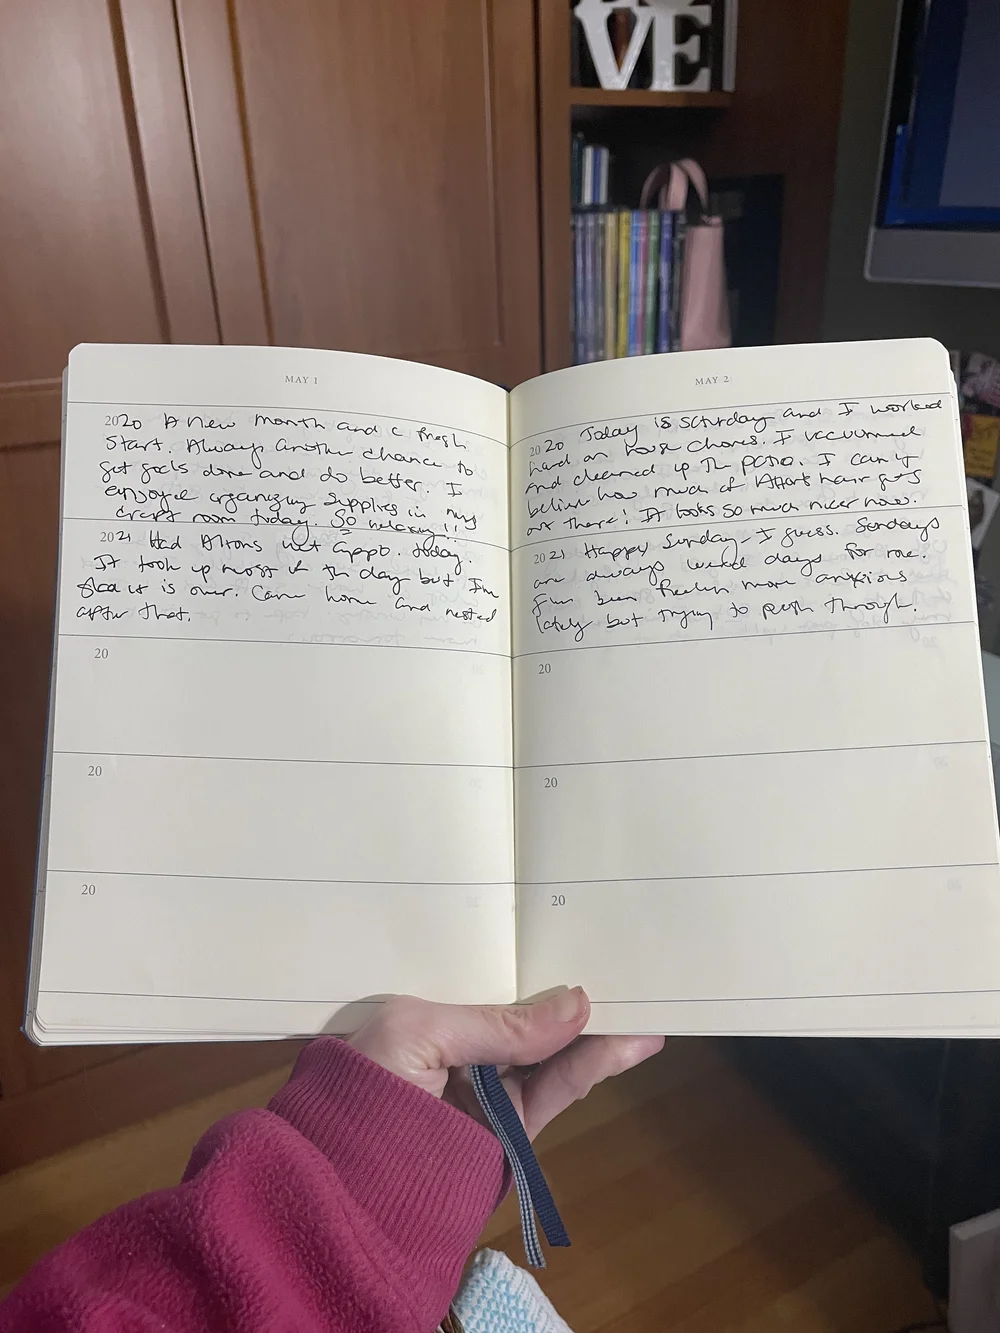 VE
MAY 1
2020 A new month and a fresh
start. Always another chance to
get goals done and do better. I
enjoyed organizing supplies in my
craft room today. So relaxing!!
2021 Had Altons vet appt. today.
It took up most of the day but I'm
glad it is over. Came home and rested
after that.
20
20
20
MAY 2
2020 Today is Saturday and I worked
hard on house chores. I vacuumed
and cleaned up the patio. I can't
believe how much of hair gets
out there! It looks so much nicer now.
2021 Happy Sunday - I guess. Sundays
are always weird days for me.
I've been feeling more anxious
lately but trying to push through.
20
20
20